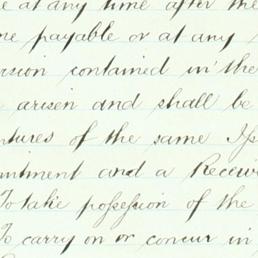 e at any time after the
ne payable or at any
ision contained in the
arisen and shall be
ntures of the same Iss
intment and a Receive
To take possession of the
To carry on or concur in